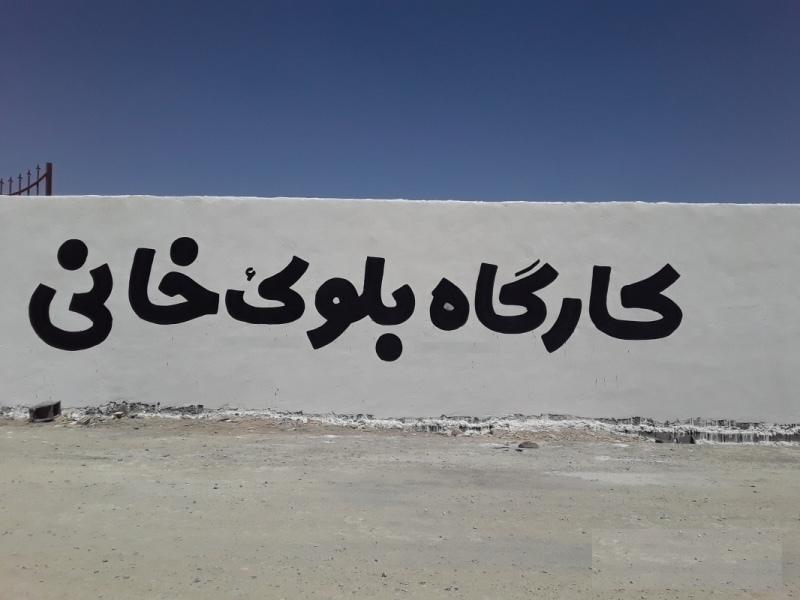 کارگاه بلوک خانی